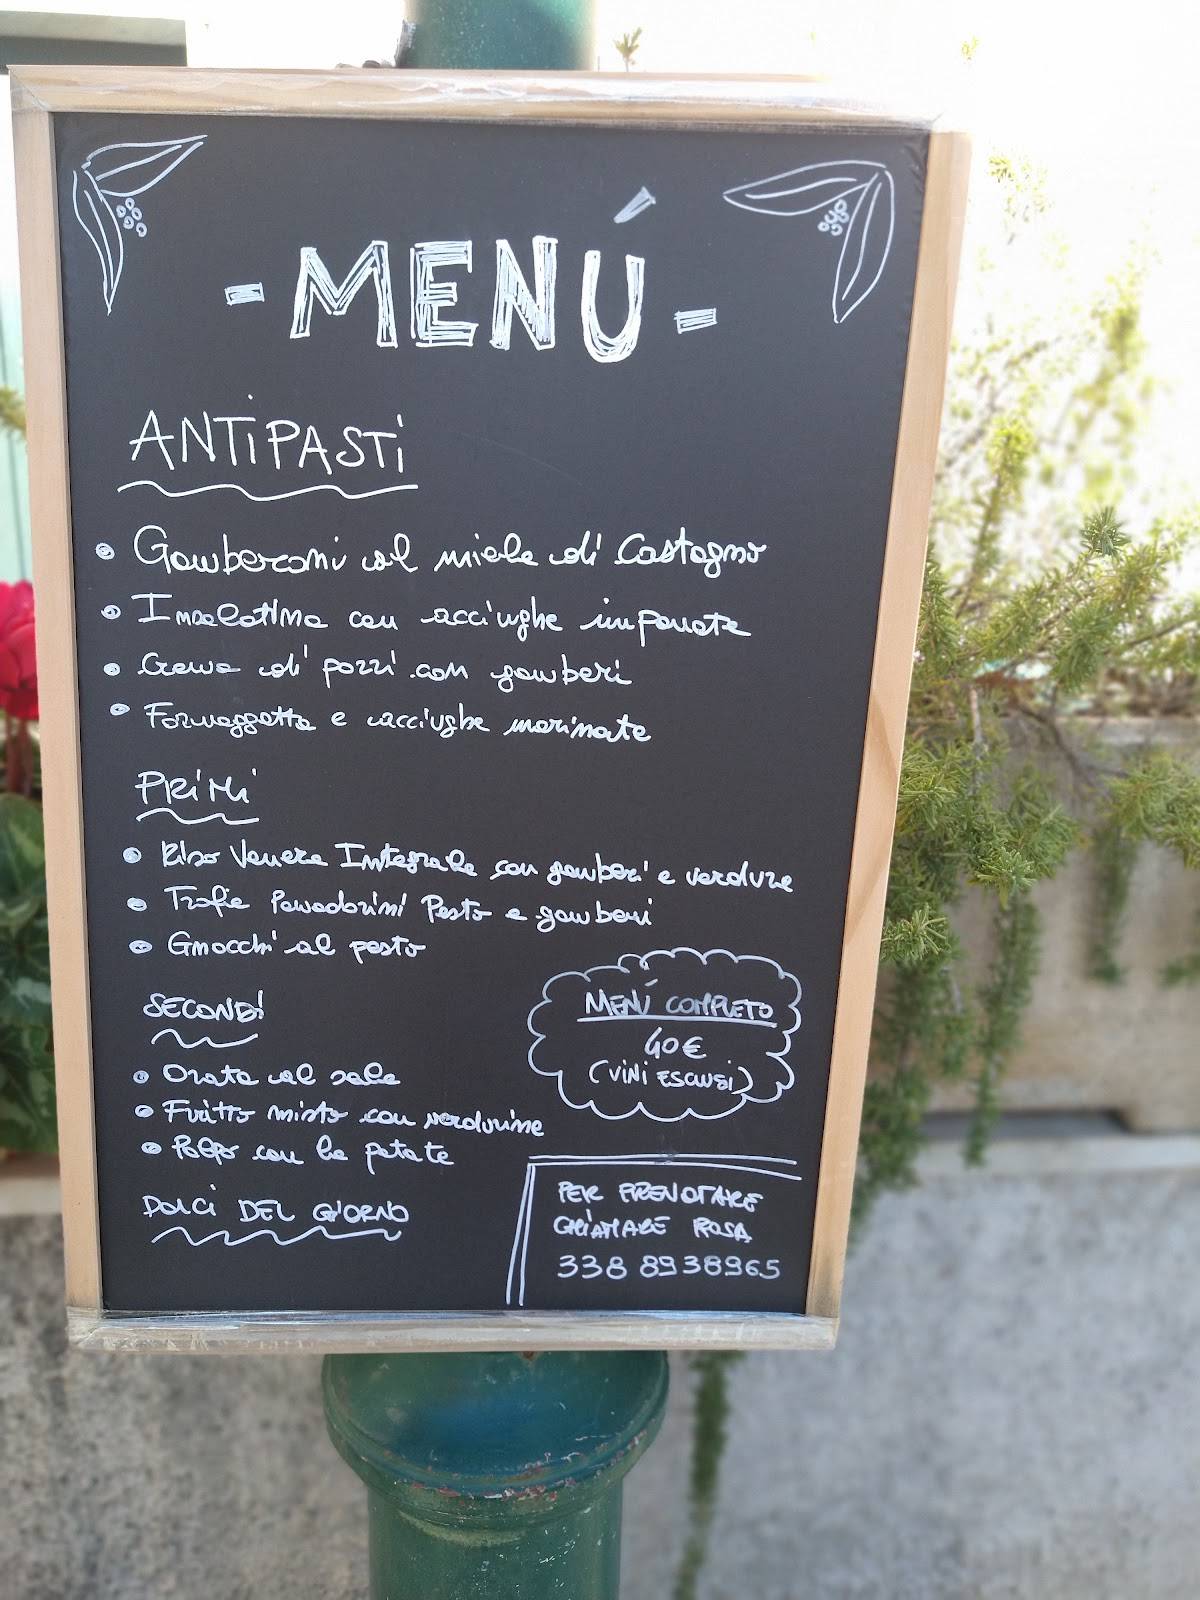 - MENÚ -
ANTIPASTI
• Gamberoni al miele di Castagno
• Insalatina con acciughe impanate
• Crema di pozzi con gamberi
• Formaggetta e acciughe marinate
PRIMI
• Riso Venere Integrale con gamberi e verdure
• Trofie Pomodorini Pesto e gamberi
• Gnocchi al pesto
SECONDI
• Orata al sale
• Fritto misto con verdurine
• Polpo con le patate
DOLCI DEL GIORNO
MENÚ COMPLETO
40€
(VINI ESCLUSI)
PER PRENOTARE
CHIAMARE ROSA
338 8938965